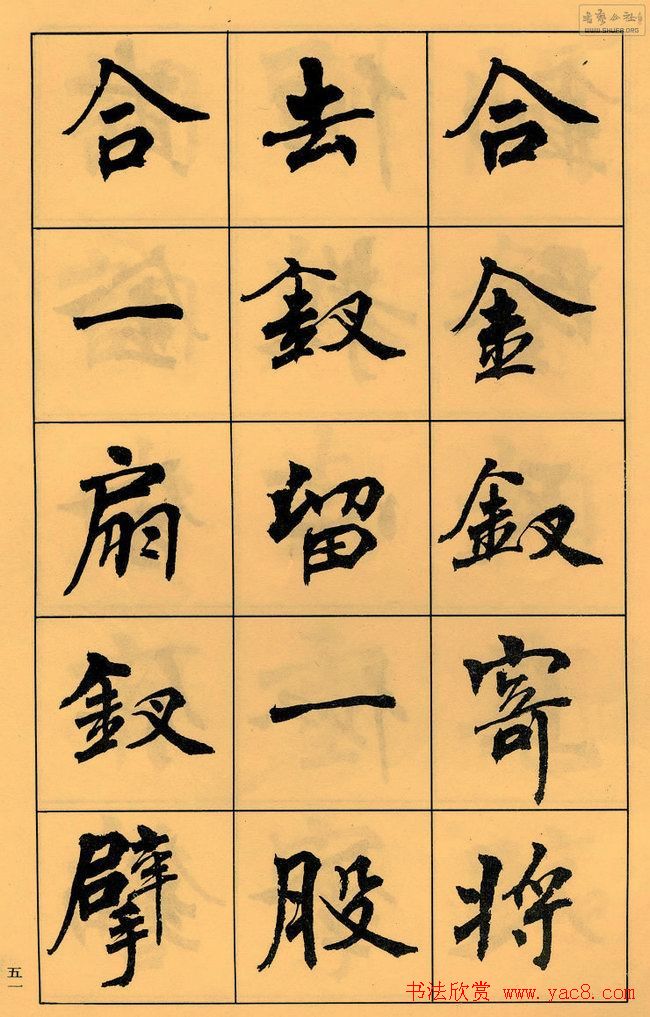 合金釵寄将
去釵留一股
合一扇釵擘
五一
书艺公社
WWW.SHUFA.ORG
书法欣赏 www.yac8.com